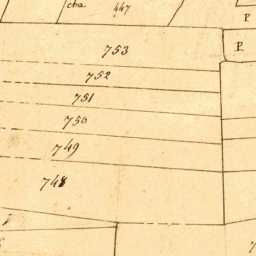 cha 447
P.
P.
753
752
751
750
749
748